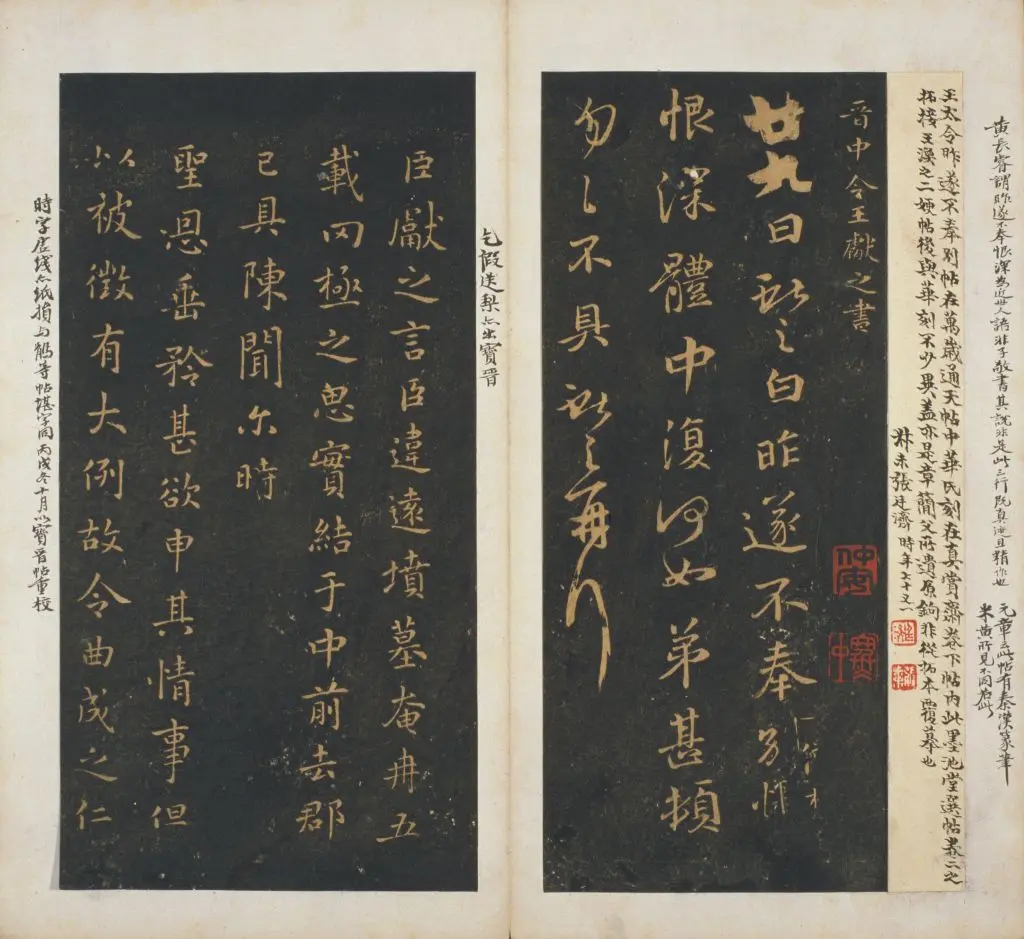 黄長睿謂昨遂不奉恨深為近世人語非子敬書其說非是此三行既真迹且精作也
元章云此帖有秦漢篆筆
米黄所見不同若此
王大令昨遂不奉別帖在萬歲通天帖中華氏刻在真賞齋卷下帖內此墨池堂選帖卷二之
拓接王渙之二嫂帖後與華刻不少異蓋亦是章簡父所遺原鉤非從拓本覆摹也
叔未張廷濟時年七十又一
晉中令王獻之書
廿九日獻之白昨遂不奉別悵
恨深體中復何如弟甚頓
匆匆不具獻之再行
乞假送梨亦出寶晉
臣獻之言臣違遠墳墓奄冉五
載罔極之思實結于中前去郡
已具陳聞尓時
聖恩垂矜甚欲申其情事但
以被徵有大例故令曲成之仁
時字居綫亦紙損与鵝等帖堪字同丙戌冬十月以寶晉帖重校